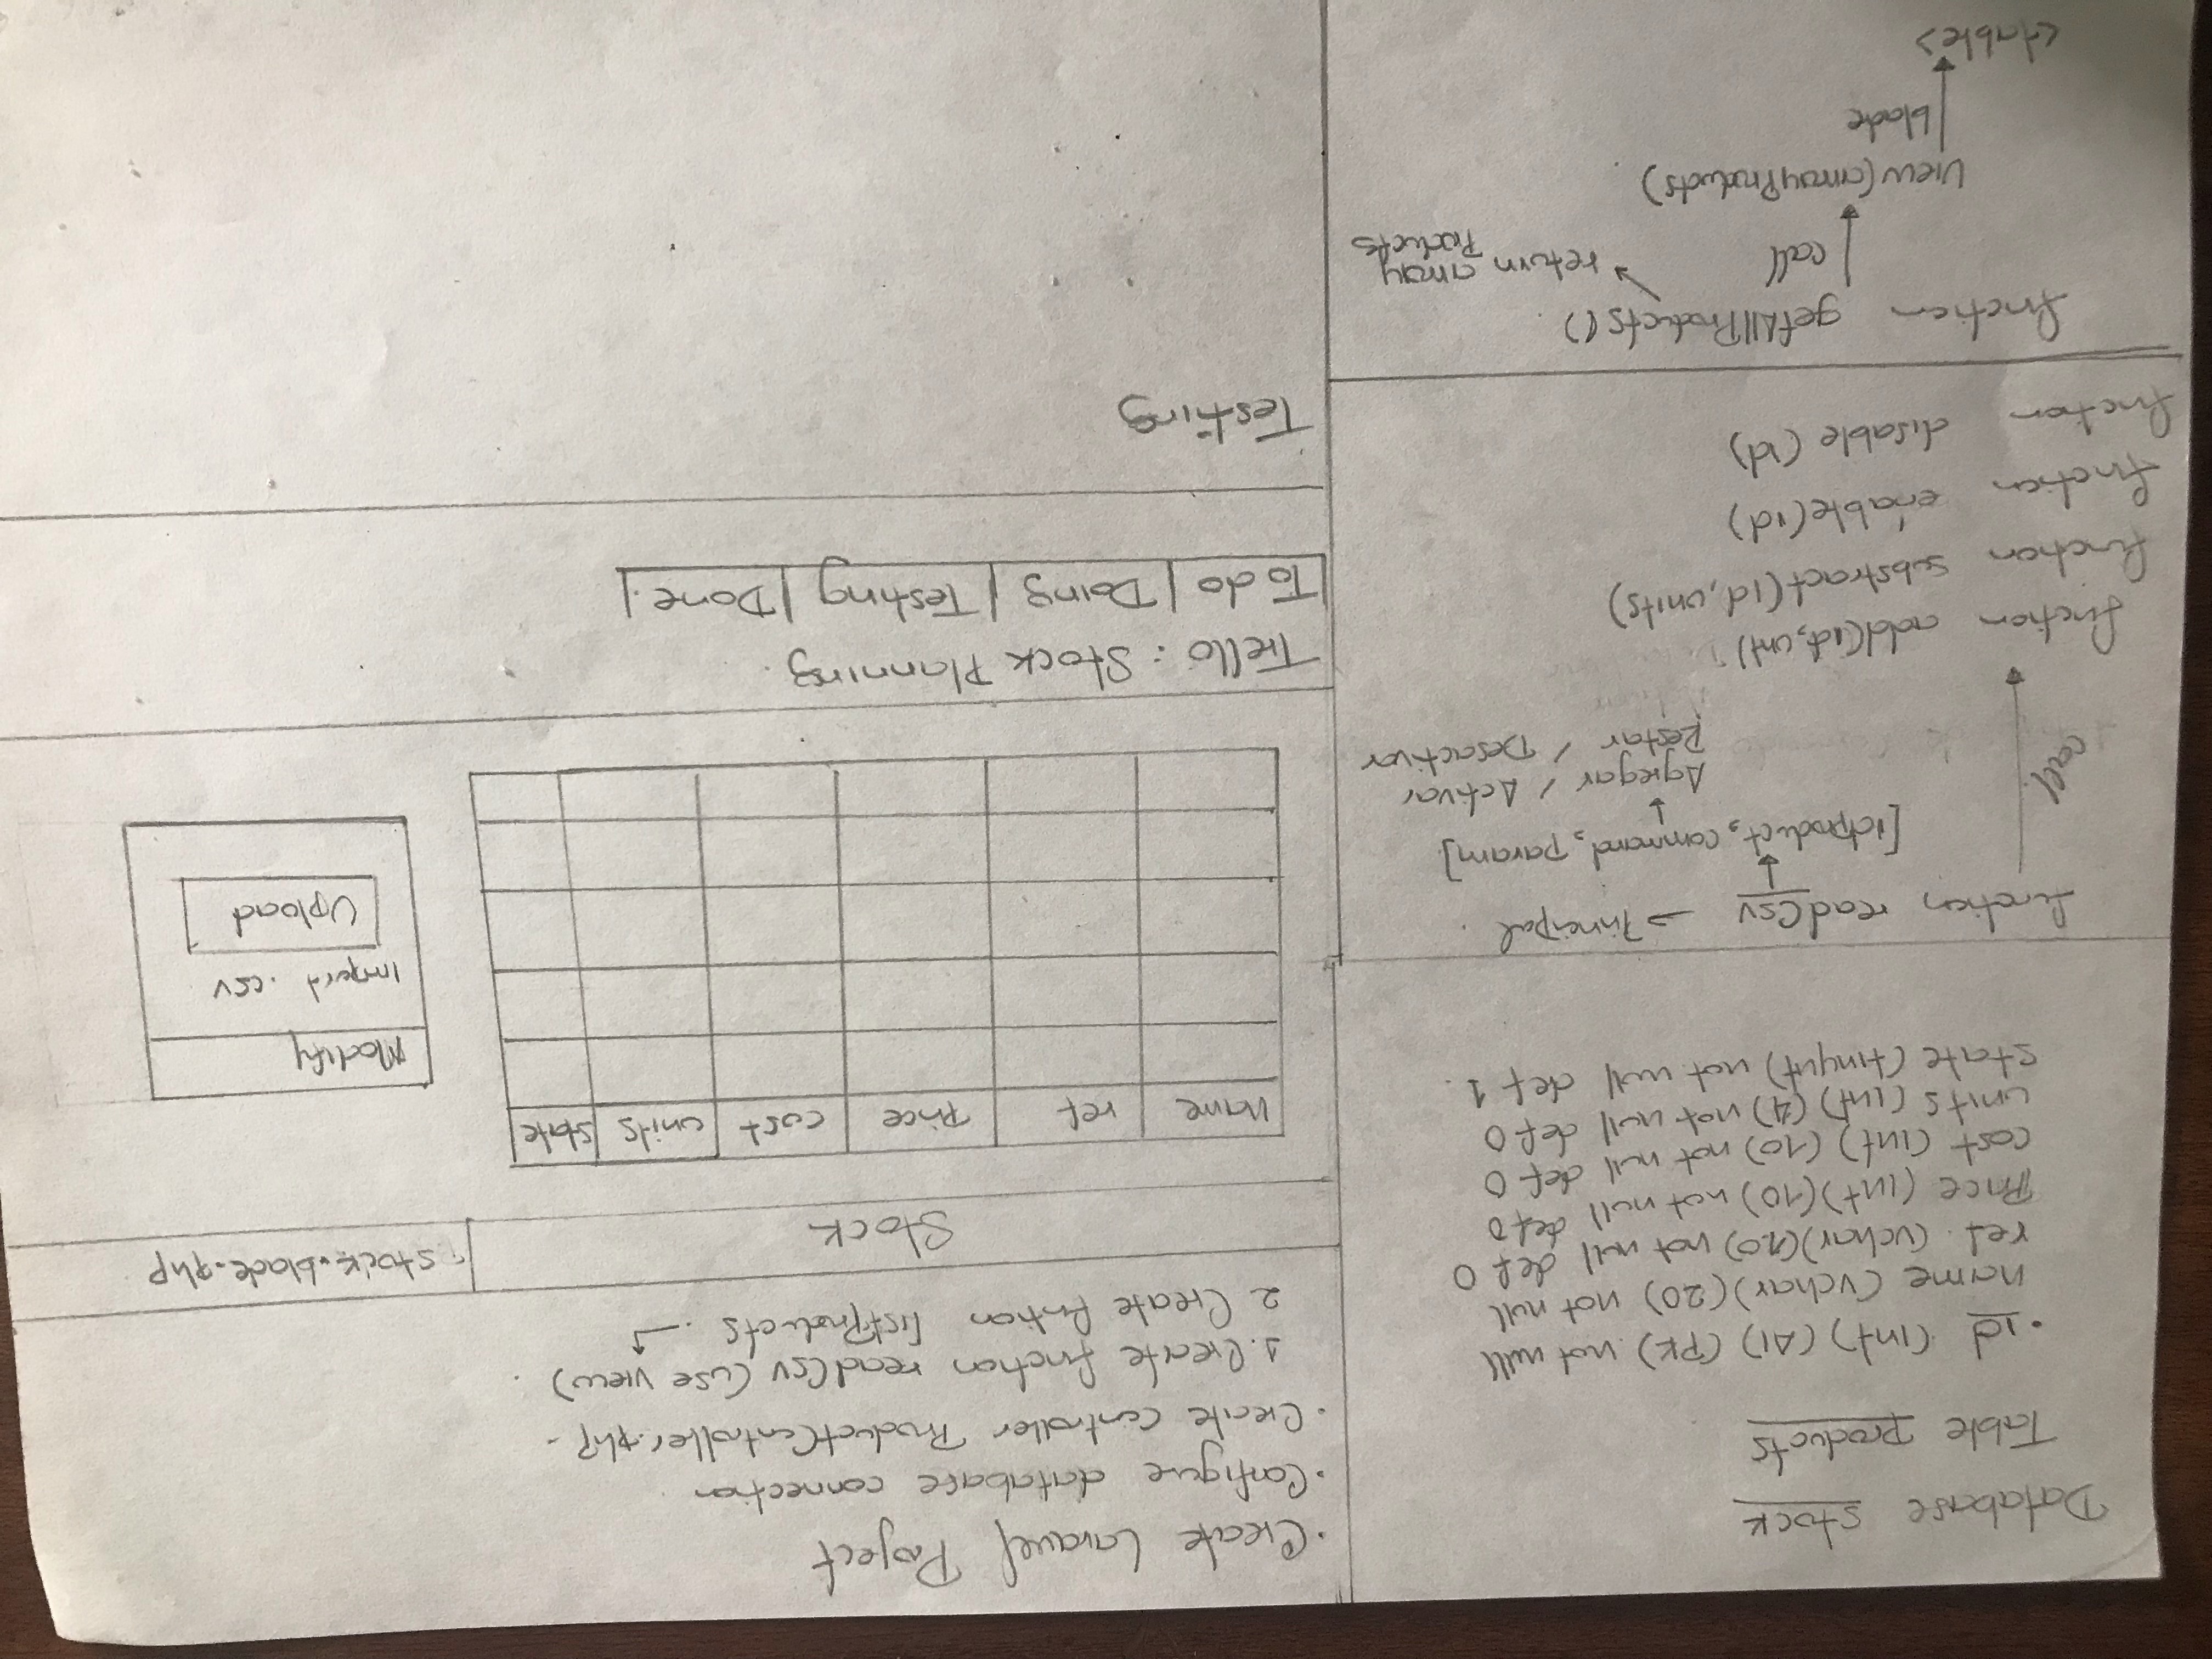 Database stock
Table products
· id (int) (AI) (PK) not null
name (vchar) (20) not null
ref. (vchar) (20) not null def 0
Price (int) (10) not null def 0
cost (int) (10) not null def 0
units (int) (4) not null def 0
state (tinyint) not null def 1.
function readCsv → Principal.
[idproduct, command, param]
Agregar / Activar
Restar / Desactivar
call
function add(id, unt)
function substract(id, units)
function enable(id)
function disable (id)
function getAllProducts().
call
return array
Products
View(arrayProducts).
blade
<table>
· Create Laravel Project
· Configure database connection
· Create controller ProductController.php.
1. Create function readCsv (use view).
2 Create funtion listProducts.
Stock
stock.blade.php
name ref Price cost units state
Modify
Import .csv
Upload
Trello: Stock Planning.
To do | Doing | Testing | Done.|
Testing